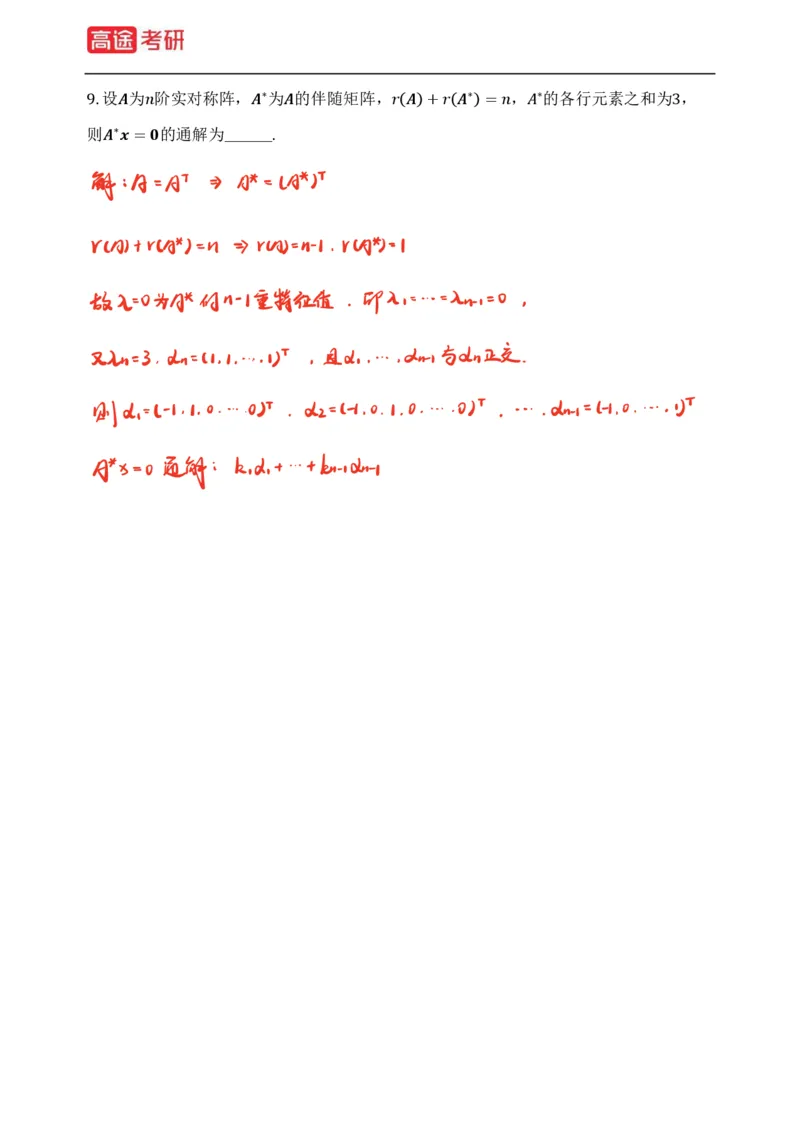 高途 考研
9.设A为n阶实对称阵，A*为A的伴随矩阵，r(A)+r(A*)=n，A*的各行元素之和为3，
则A*x=0的通解为______.
解：A=Aᵀ ⇒ A*=(A*)ᵀ
r(A)+r(A*)=n ⇒ r(A)=n-1，r(A*)=1
故λ=0为A*的n-1重特征值．即λ₁=⋯=λₙ₋₁=0，
又λₙ=3，αₙ=(1,1,⋯,1)ᵀ，且α₁,⋯,αₙ₋₁与αₙ正交.
则α₁=(-1,1,0,⋯,0)ᵀ，α₂=(-1,0,1,0,⋯,0)ᵀ，⋯，αₙ₋₁=(-1,0,⋯,1)ᵀ
A*x=0通解：k₁α₁+⋯+kₙ₋₁αₙ₋₁